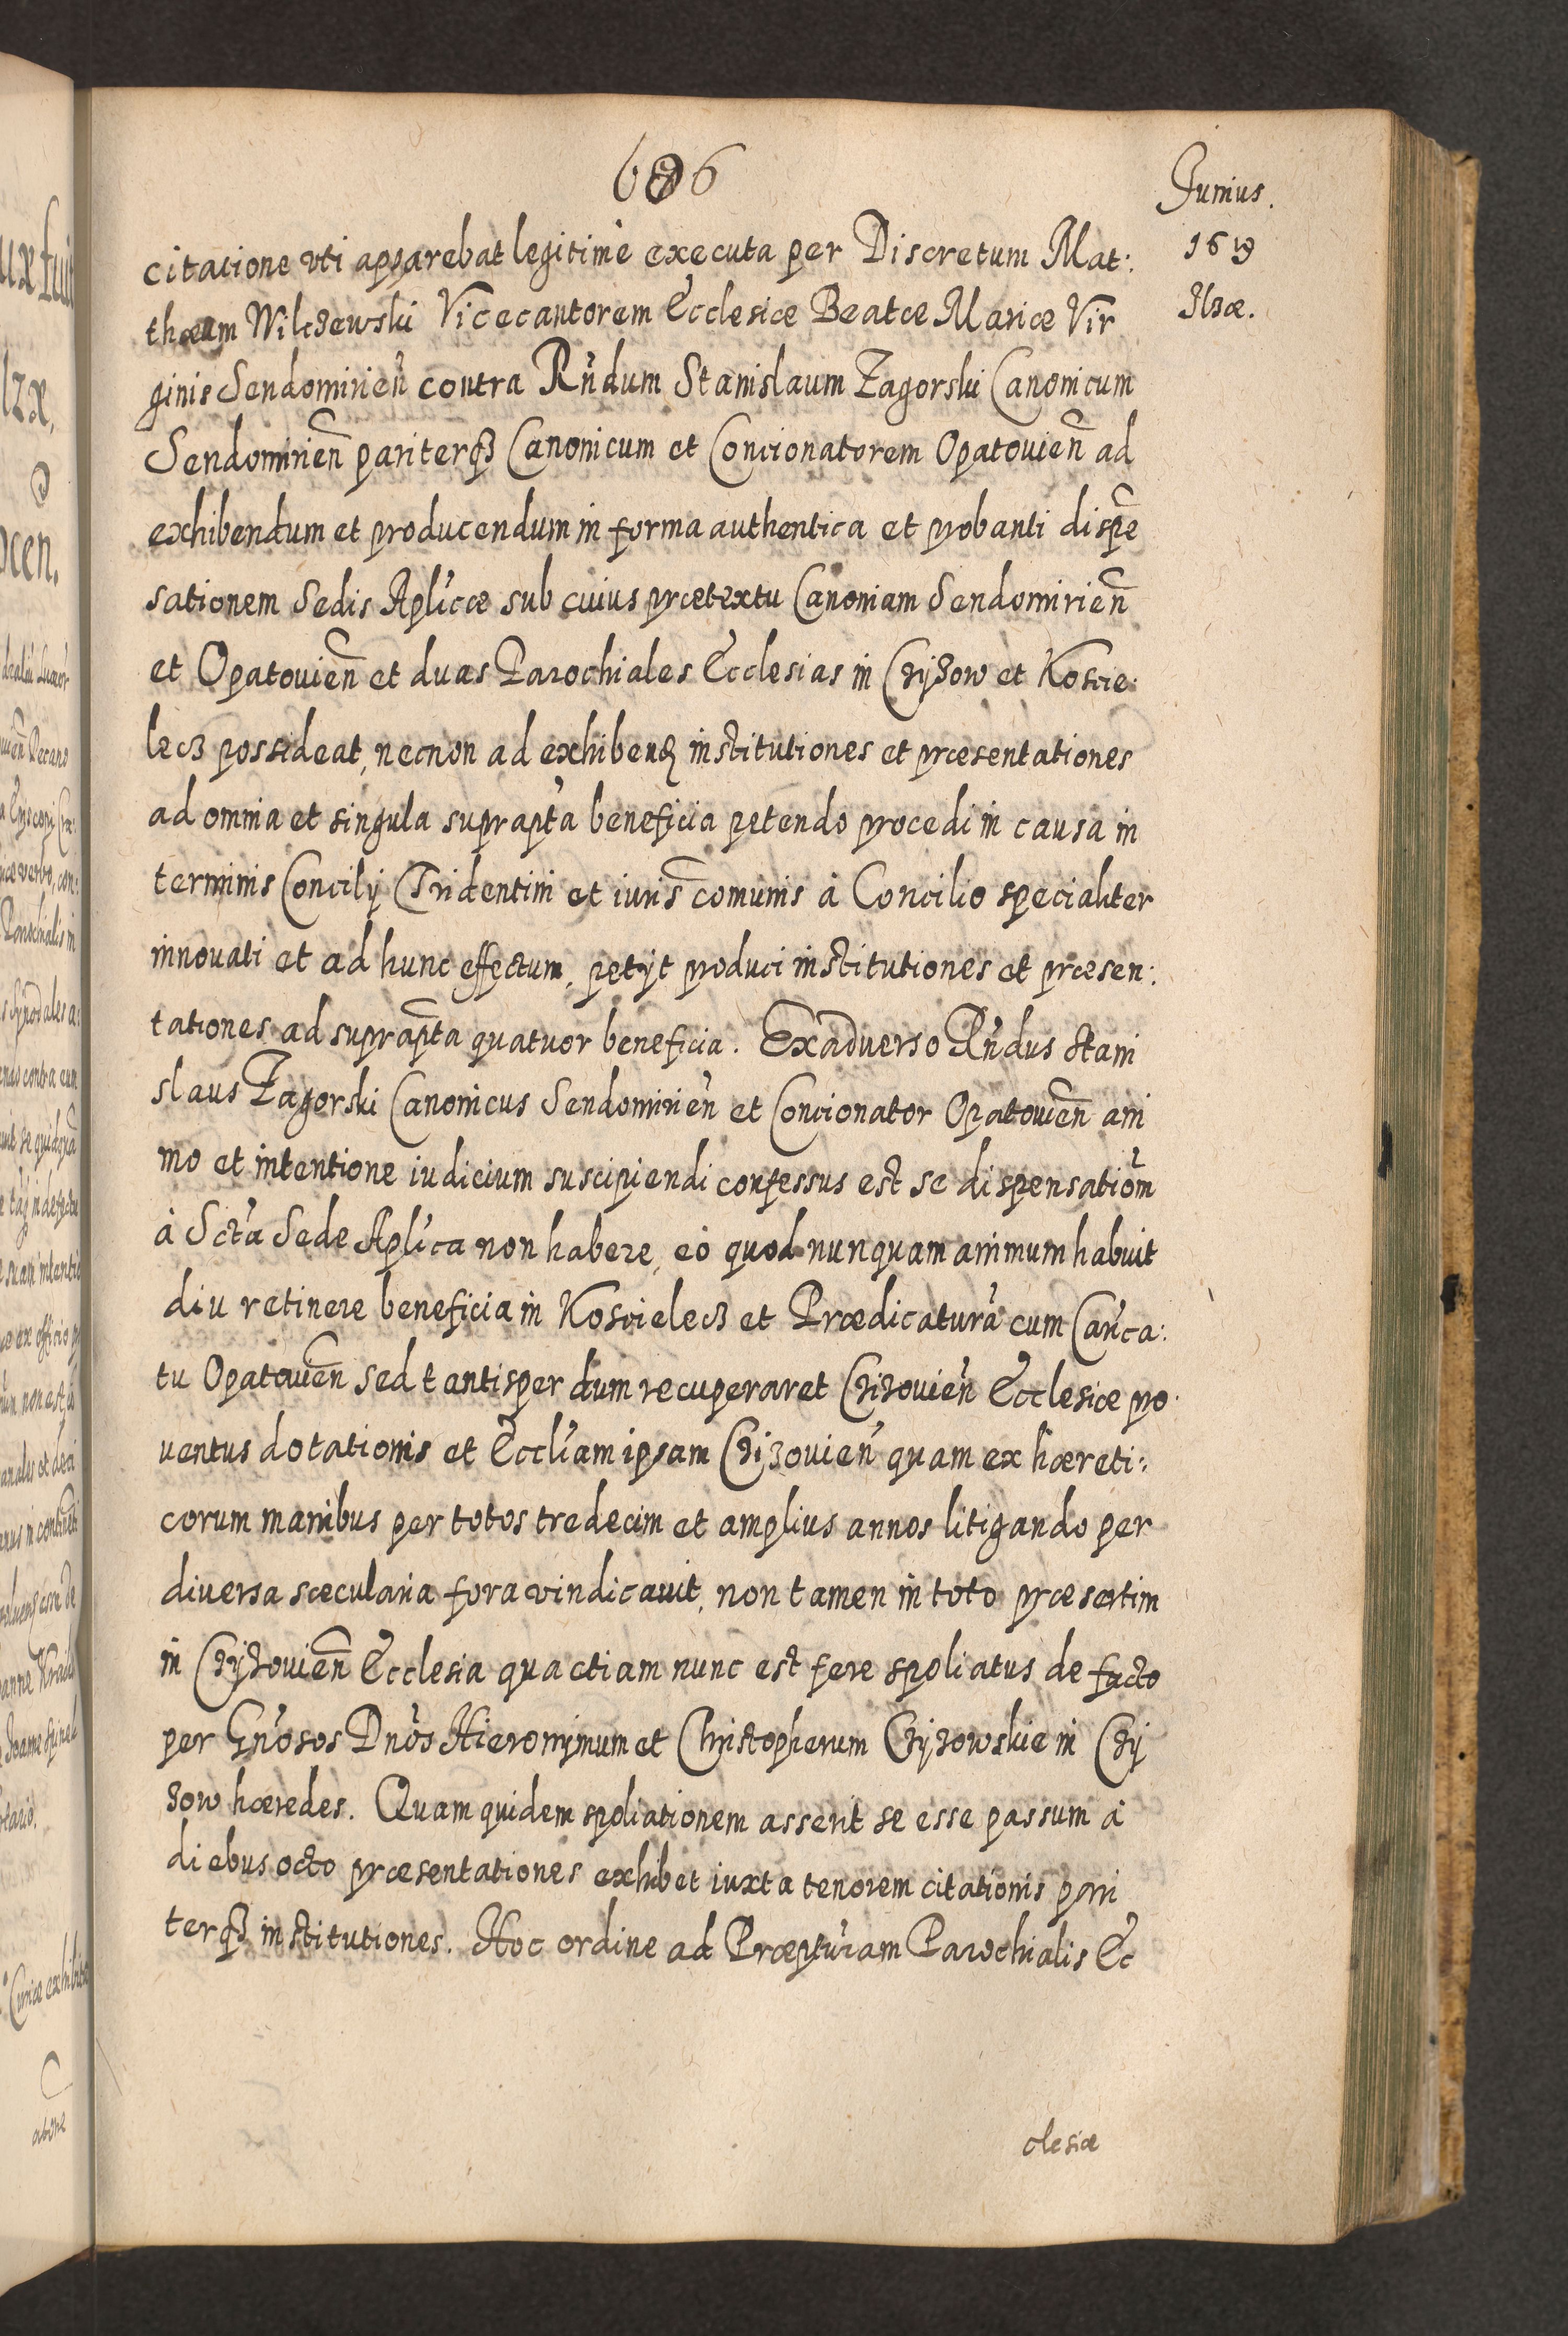 686
Junius.
1619
Ilzæ.
citatione vti apparebat legitime executa per Discretum Mat:
thæum Wilczewski Vicecantorem Ecclesiæ Beatæ Mariæ Vir
ginis Sendomirien̄ contra Rn̄dum Stanislaum Zagorski Canonicum
Sendomirien̄ pariterqȝ Canonicum et Concionatorem Opatouien̄ ad
exhibendum et producendum in forma authentica et probanti dispe͞
sationem Sedis Apl'icæ sub cuius prætextu Canoniam Sendomirien̄
et Opatouien̄ et duas Parochiales Ecclesias in Czyzow et Koscie:
lecz possideat, necnon ad exhibend institutiones et præsentationes
ad omnia et singula suprapt'a beneficia petendo procedi in causa in
terminis Concilij Tridentini et iuris com̄unis à Concilio specialiter
innouati et ad hunc effectum, petijt produci institutiones et præsen:
tationes ad suprap̄ta quatuor beneficia. Exaduerso Rn̄dus Stani
slaus Zagorski Canonicus Sendomirien̄ et Concionator Opatouien̄ ani
mo et intentione iudicium suscipiendi confessus est se dispensatiom̄
à Sct'a Sede Apl'ica non habere, eò quod nunquam animum habuit
diu retinere beneficia in Koscielecz et Prædicaturā cum Can'ca:
tu Opatouien̄ sed tantisper dum recuperaret Czizouien̄ Ecclesiæ pro
uentus dotationis et Eccl'iam ipsam Czizouien̄ quam ex hæreti:
corum manibus per totos tredecim et amplius annos litigando per
diuersa sæcularia fora vindicauit, non tamen in toto præsertim
in Czyzouien̄ Ecclesia qua etiam nunc est fere spoliatus de facto
per Gn'osos Dn'os Hieronymum et Christopherum Czyzowskie in Czy
zow hæredes. Quam quidem spoliationem asserit se esse passum à
diebus octo præsentationes exhibet iuxta tenorem citationis pari
terqȝ institutiones. Hoc ordine ad Præpt'uram Parochialis Ec
clesiæ